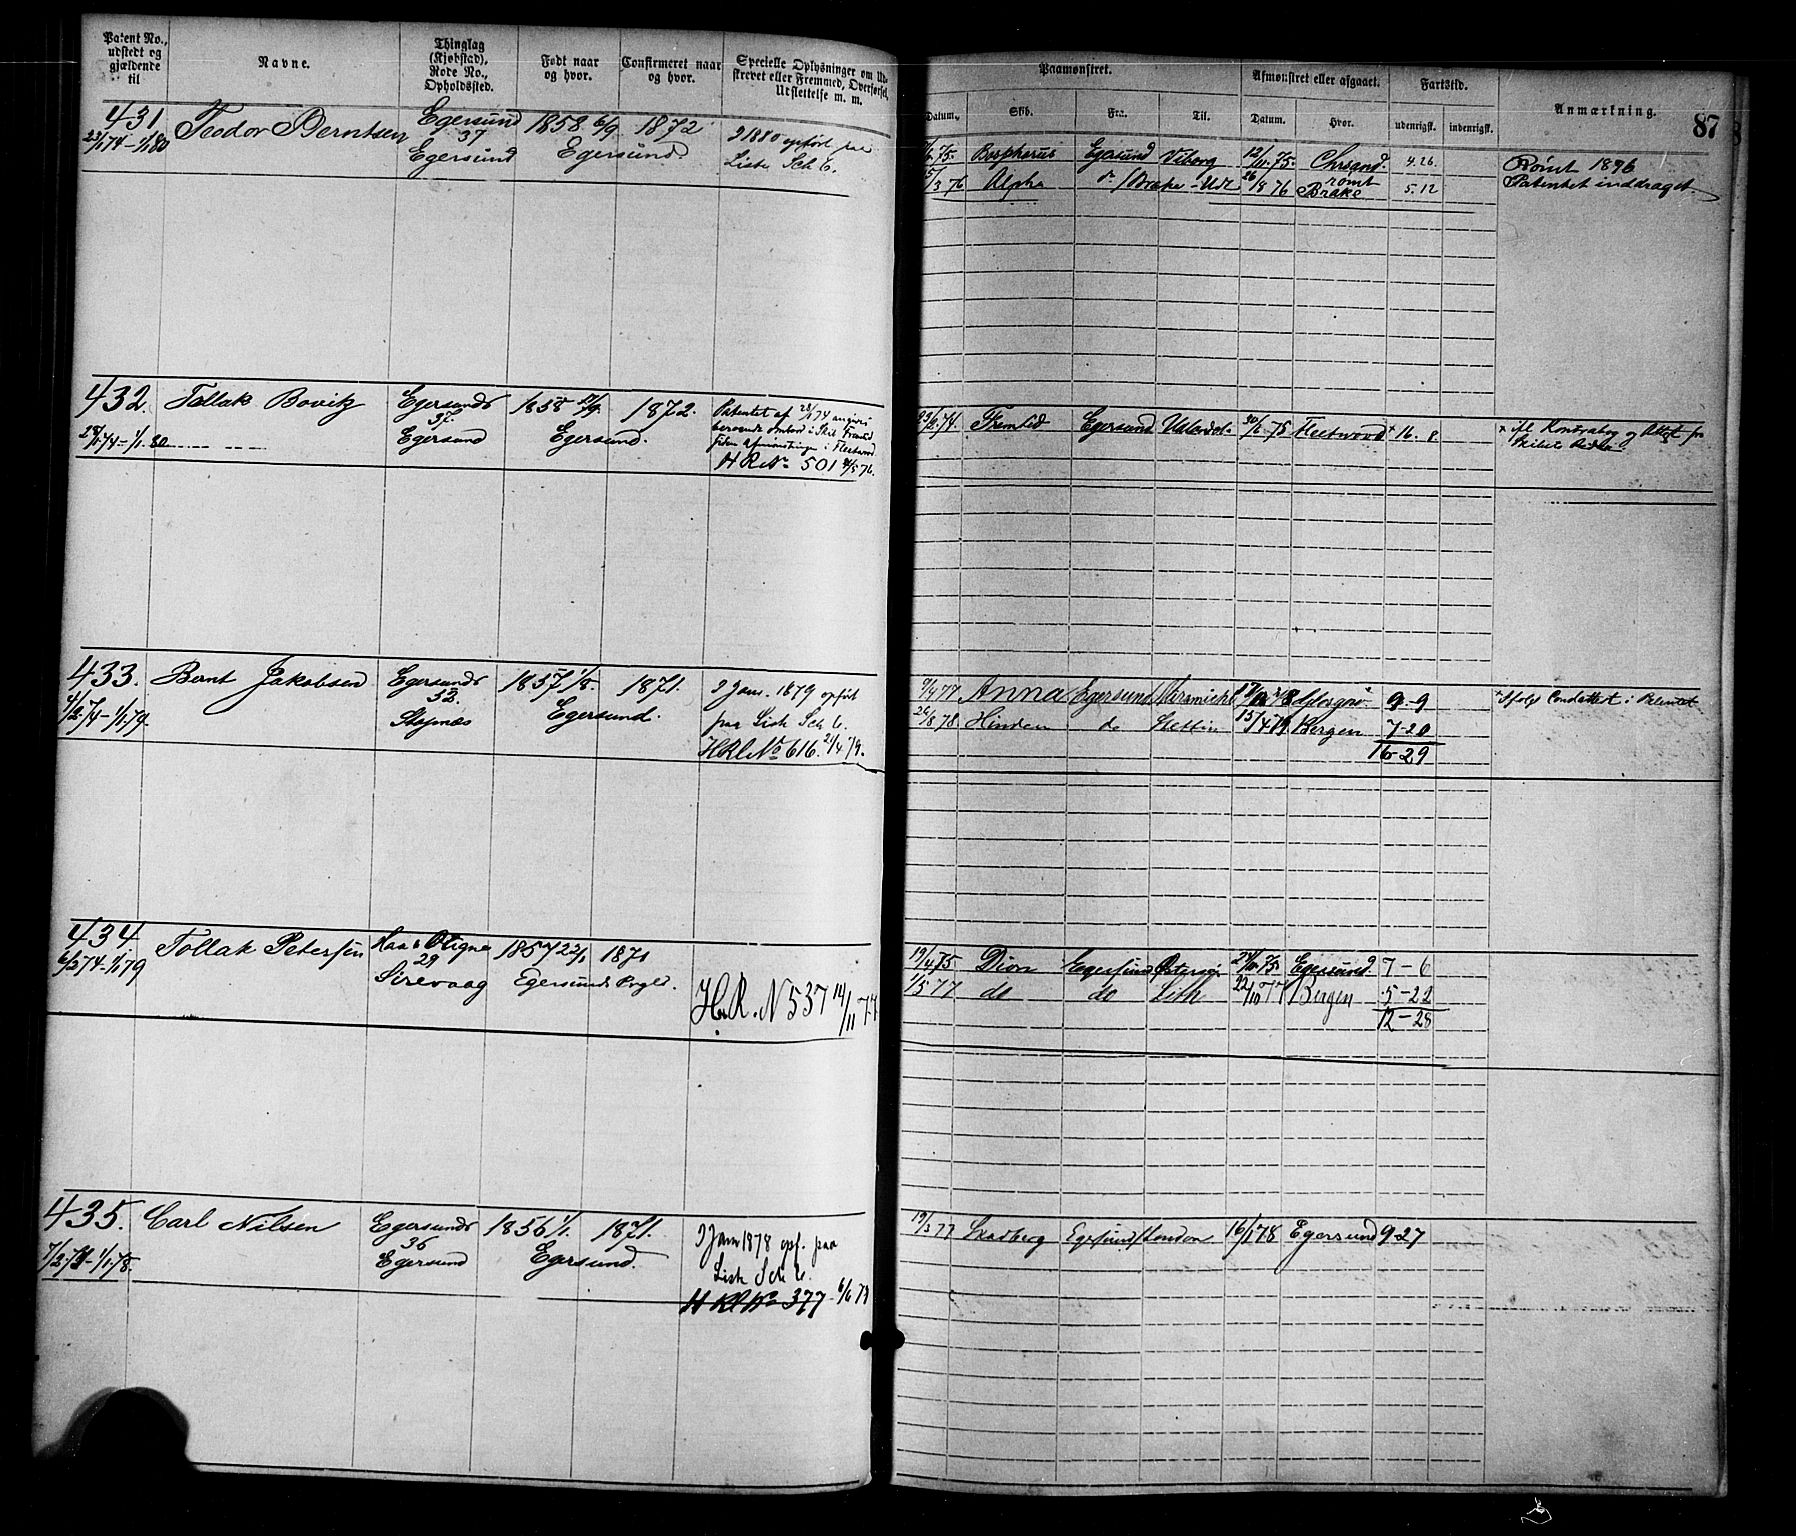 Patent No., udstedt og gjældende til
Navne.
Thinglag (Kjøbstad), Rode No., Opholdssted.
Født naar og hvor.
Confirmeret naar og hvor.
Specielle Oplysninger om Udskrevet eller Fremmed, Overførsel, Udslettelse m. m.
Paamønstret.
Afmønstret eller afgaaet.
Fartstid.
Anmærkning.
87
Datum.
Skib.
Fra.
Til.
Datum.
Hvor.
udenrigsk.
indenrigsk.
431
23/1 74 - 1/1 80
Teodor Berntsen
Egersund
37
Egersund
1858 6/9
1872
Egersund
I 1880 opført paa
Liste Sch C.
75. Bospherus Egersund Viborg 12/11 75. Chrsand. 4.26
15/3 76 Alpha do /Brake - Udl 26/8 76 rømt Brake 5.12
Rømt 1876
Patentet inddraget
432.
28/1 74 - 1/1 80
Tollak Bovitz
Egersunds
37.
Egersund
1858
1872.
Egersund.
Patentet af 28/1 74 angives
beroende ombord i Skib Fremtid
siden afmønstringen i Fleetwood
H R No 501 76.
74. Fremtid Egersund 75 Fleetwood x 16. 8.
433.
4/2 74 - 1/1 79.
Bernt Jakobsen
Egersunds
32.
Stapnæs
1857 1/8.
1871.
Egersund.
I Jan. 1879 opført
paa Liste Sch C.
H R No 616. 21/4 79.
9/4 77 Anna Egersund 9-9
26/8 78 Hinden do Stettin 15/4 79 Bergen 7-20
16-29
434
6/2 74 - 1/1 79
Tollak Petersen
Haa & Ogne
29
Sirevaag
1857 22/1
1871
Egersunds Prgld.
H.R. N 537 14/11 77
19/4 75. Dion Egersund 75 Egersund 7-6
1/5 77 do do Leith 22/10 77 Bergen 5-22
12-28
435.
7/2 74 - 1/1 78.
Carl Nilsen
Egersunds
36
Egersund
1856 1/1.
1871.
Egersund.
I Jan 1878 opf. paa
Liste Sch C.
H Rl No 377 - 6/6 78
19/3 77 Skadberg Egersund London 16/1 78 Egersund 9-27